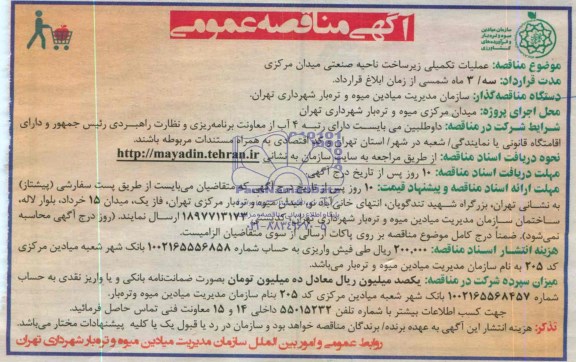 آگهی مناقصه عمومی
سازمان میادین
میوه و تره‌بار
موضوع مناقصه: عملیات تکمیلی زیرساخت ناحیه صنعتی میدان مرکزی
مدت قرارداد: سه/ ۳ ماه شمسی از زمان ابلاغ قرارداد.
دستگاه مناقصه‌گذار: سازمان مدیریت میادین میوه و تره‌بار شهرداری تهران.
محل اجرای پروژه: میدان مرکزی میوه و تره‌بار شهرداری تهران
شرایط شرکت در مناقصه: داوطلبین می بایست دارای رتبه ۴ آب از معاونت برنامه‌ریزی و نظارت راهبردی رئیس جمهور و دارای
اقامتگاه قانونی یا نمایندگی/ شعبه در شهر/ استان تهران و کد اقتصادی به همراه مستندات مربوطه باشند.
نحوه دریافت اسناد مناقصه: از طریق مراجعه به سایت سازمان به نشانی http://mayadin.tehran.ir
مهلت دریافت اسناد مناقصه: ۱۰ روز پس از تاریخ درج آگهی.
مهلت ارائه اسناد مناقصه و پیشنهاد قیمت: ۱۰ روز پس از تاریخ درج آگهی. متقاضیان می‌بایست از طریق پست سفارشی (پیشتاز)
به نشانی تهران، بزرگراه شهید تندگویان، انتهای خانی‌آباد نو، میدان میوه و تره‌بار مرکزی تهران، فاز یک، میدان ۱۵ خرداد، بلوار لاله،
ساختمان سازمان مدیریت میادین میوه و تره‌بار شهرداری تهران، کدپستی ۱۸۹۷۷۱۳۱۷۳ ارسال نمایند. (روز درج آگهی محاسبه
نمی‌شود). ضمناً درج کامل موضوع مناقصه بر روی پاکات ارسالی از سوی متقاضیان الزامیست.
هزینه انتشار اسناد مناقصه: ۲۰۰,۰۰۰ ریال طی فیش واریزی به حساب شماره ۱۰۰۲۱۶۵۵۵۶۸۵۸ بانک شهر شعبه میادین مرکزی
کد ۲۰۵ به نام سازمان مدیریت میادین میوه و تره‌بار می‌باشد.
میزان سپرده شرکت در مناقصه: یکصد میلیون ریال معادل ده میلیون تومان بصورت ضمانت‌نامه بانکی و یا واریز نقدی به حساب
شماره ۱۰۰۲۱۶۵۵۶۸۴۵۷ بانک شهر شعبه میادین مرکزی کد ۲۰۵ بنام سازمان مدیریت میادین میوه وتره‌بار.
جهت کسب اطلاعات بیشتر با شماره تلفن ۵۵۰۱۵۲۳۲ داخلی ۱۴ و ۱۵ معاونت فنی تماس حاصل فرمائید.
تذکر: هزینه انتشار این آگهی به عهده برنده/ برندگان مناقصه خواهد بود و سازمان در رد یا قبول یک یا کلیه پیشنهادات مختار می‌باشد.
روابط عمومی و امور بین الملل سازمان مدیریت میادین میوه و تره‌بار شهرداری تهران